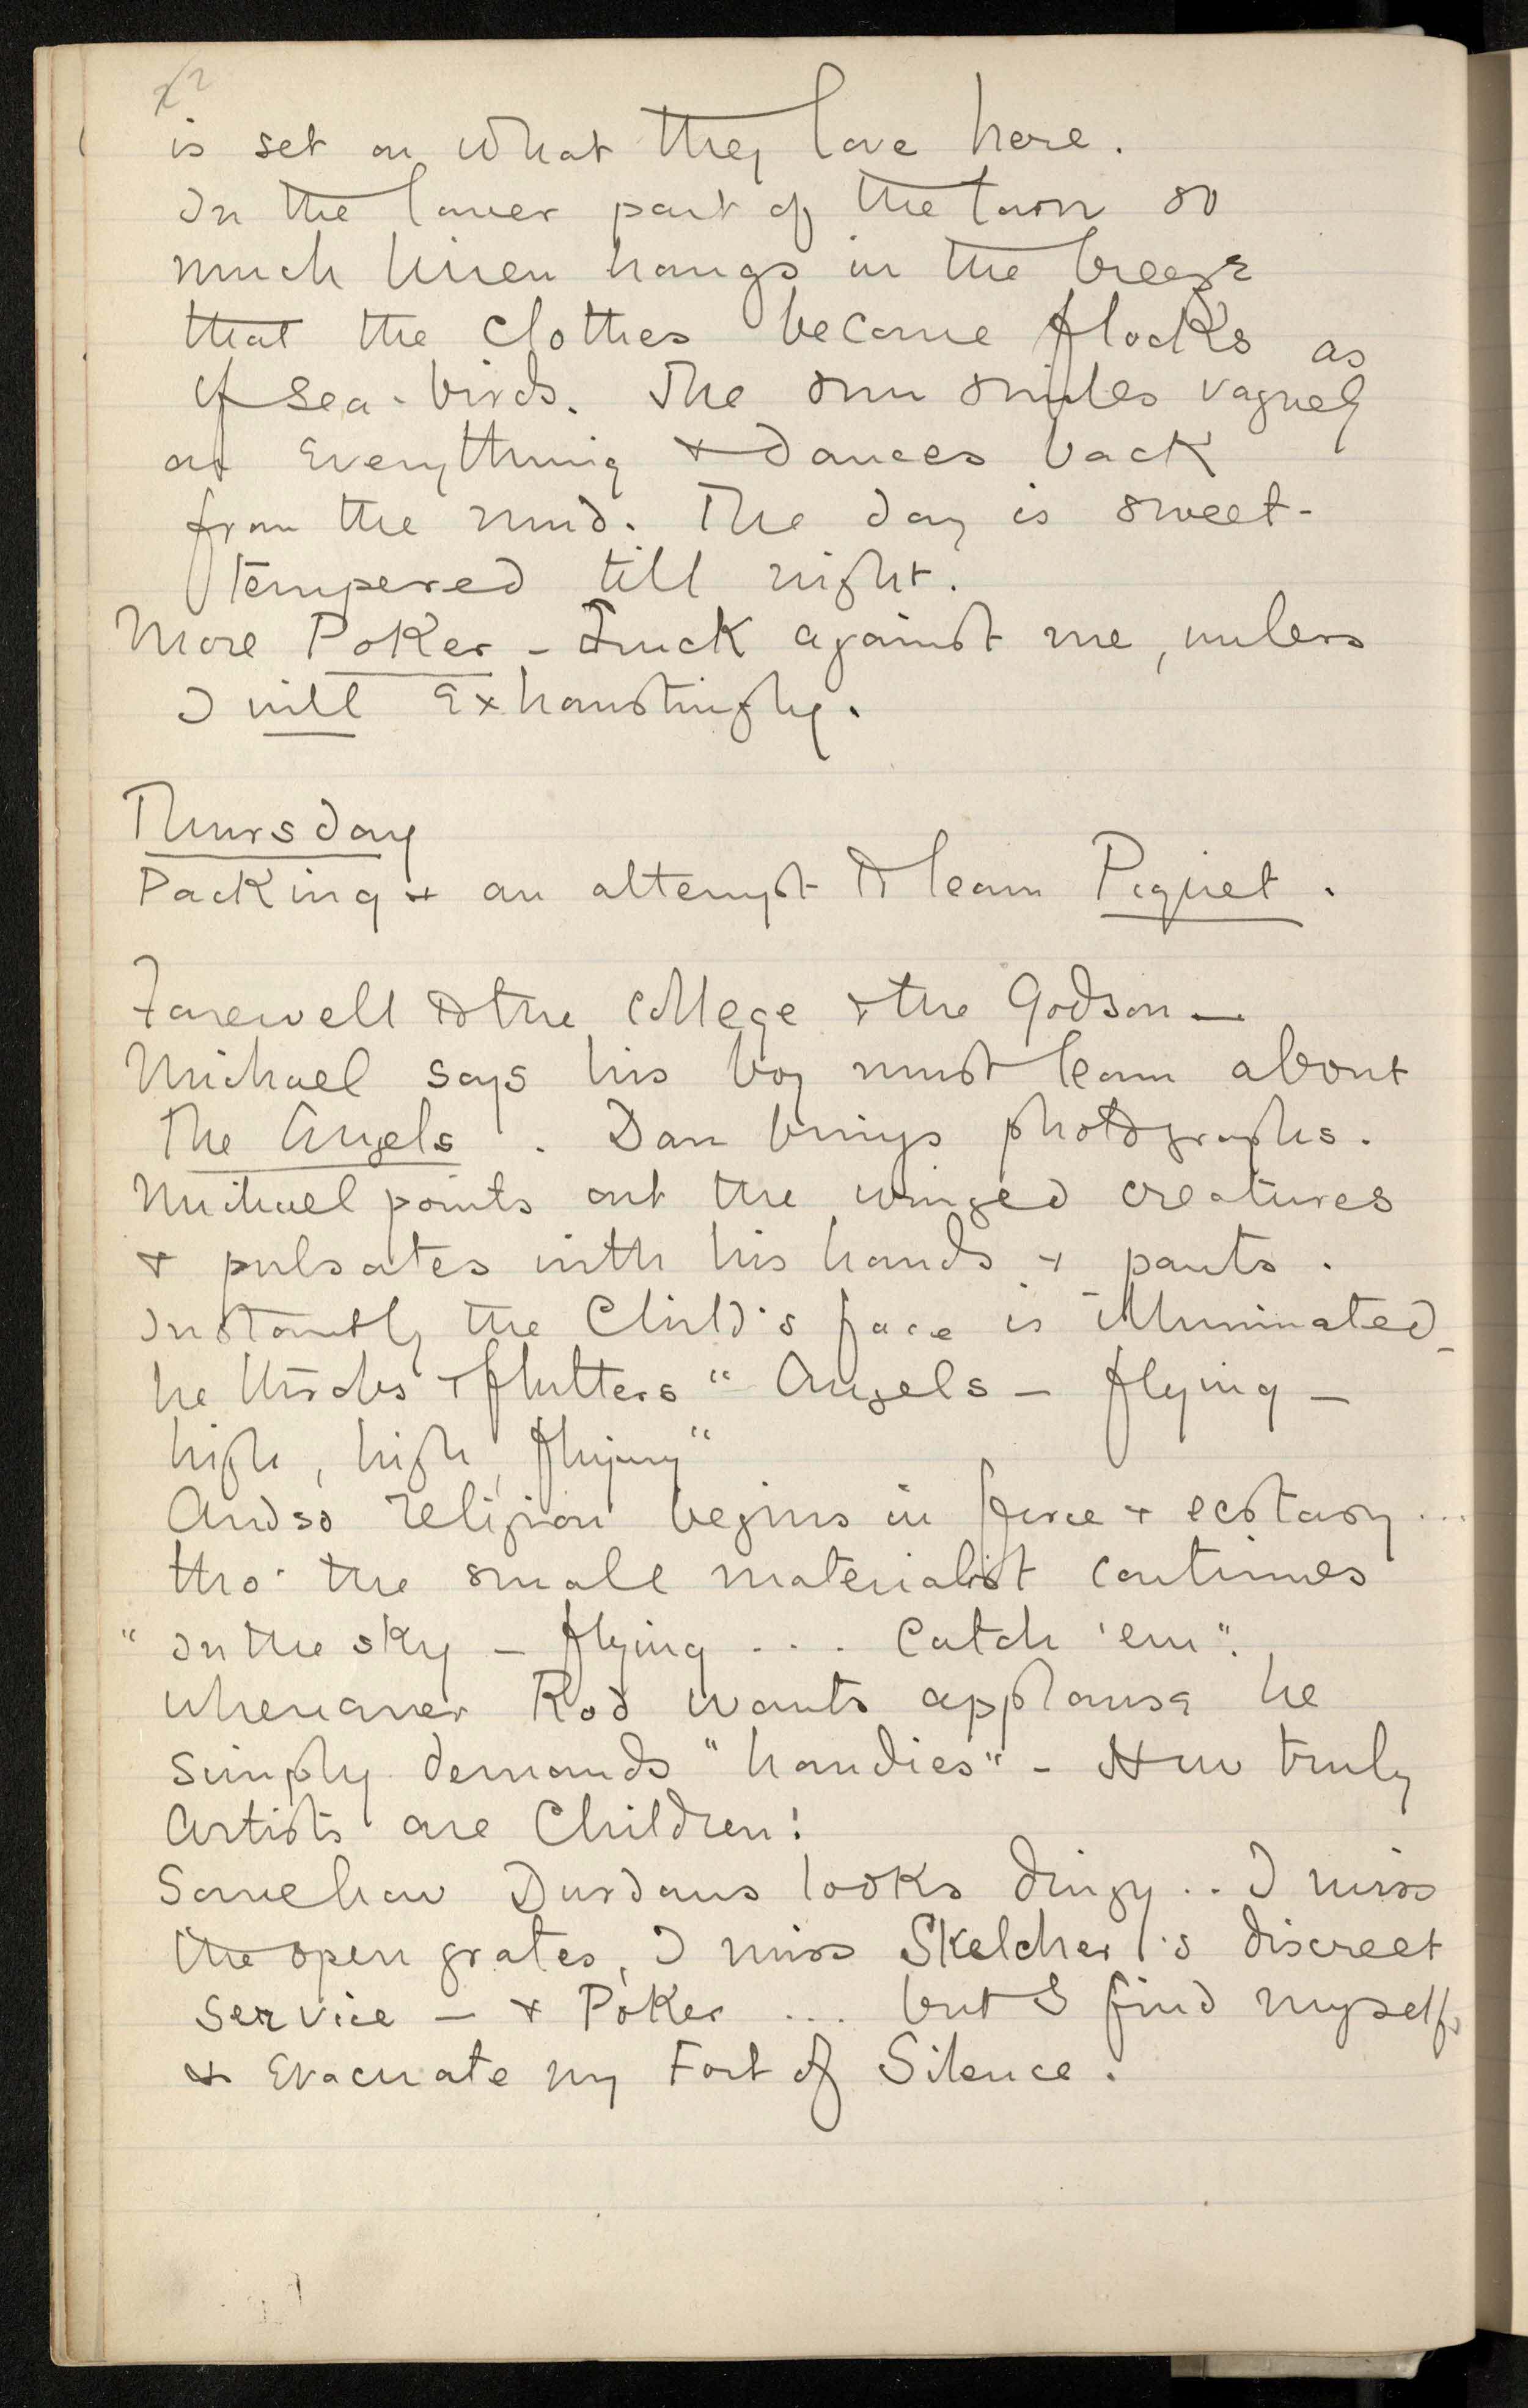 is set on what they love here.
In the lower part of the town so
much linen hangs in the breeze
that the clothes become flocks as
of sea-birds. The sun smiles vaguely
at Everything & dances back
from the mud. The day is sweet-
tempered till night.
More Poker – Luck against me, unless
I will Exhaustingly.
Thursday
Packing & an attempt to learn Piquet.
Farewell to the College & the Godson –
Michael says his boy must learn about
the Angels. Dan brings photographs.
Michael points out the winged creatures
& pulsates with his hands & pants.
Instantly the Child's face is illuminated –
he & flutters "Angels – flying –
high, high, flying"
And so religion begins in force & ecstasy ...
tho' the small materialist continues
"In the sky – flying ... Catch 'em".
Whenever Rod wants applause he
simply demands "handies" – How truly
Artists are Children!
Somehow Durdans looks dingy .. I miss
the open grates, I miss Skelcher's discreet
service – & Poker ... but I find myself,
& Evacuate my Fort of Silence.